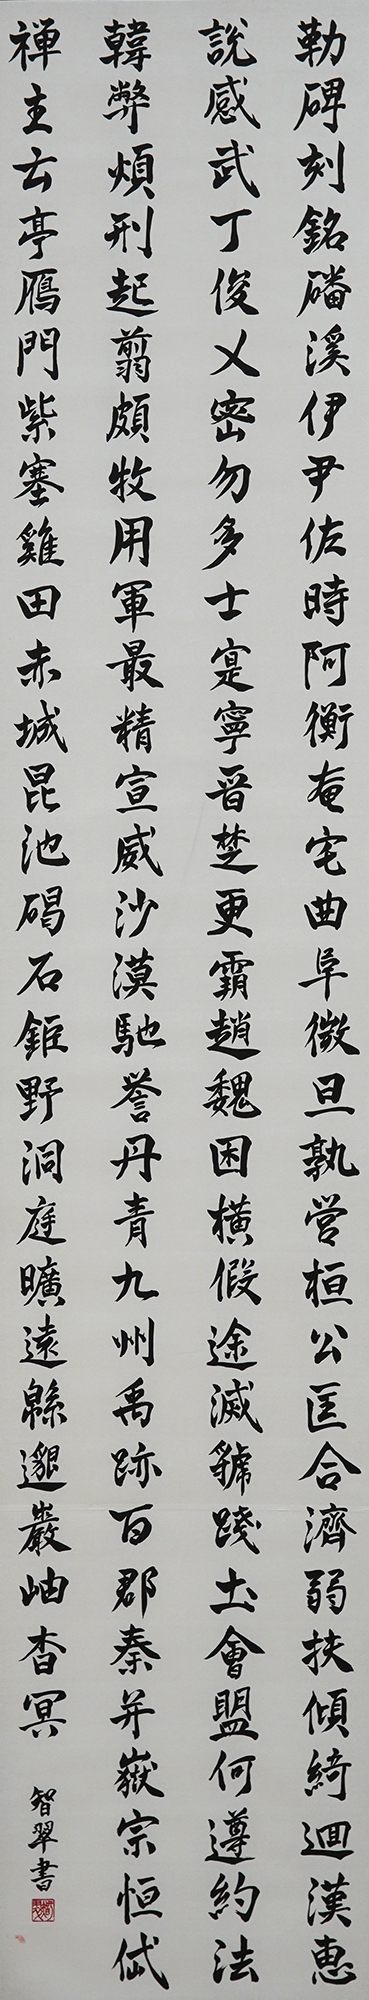 勒碑刻銘磻溪伊尹佐時阿衡奄宅曲阜微旦孰營桓公匡合濟弱扶傾綺迴漢惠
說感武丁俊乂密勿多士寔寧晉楚更霸趙魏困橫假途滅虢踐土會盟何遵約法
韓弊煩刑起翦頗牧用軍最精宣威沙漠馳譽丹青九州禹跡百郡秦并嶽宗恒岱
禪主云亭鴈門紫塞雞田赤城昆池碣石鉅野洞庭曠遠緜邈巖岫杳冥
智翠書